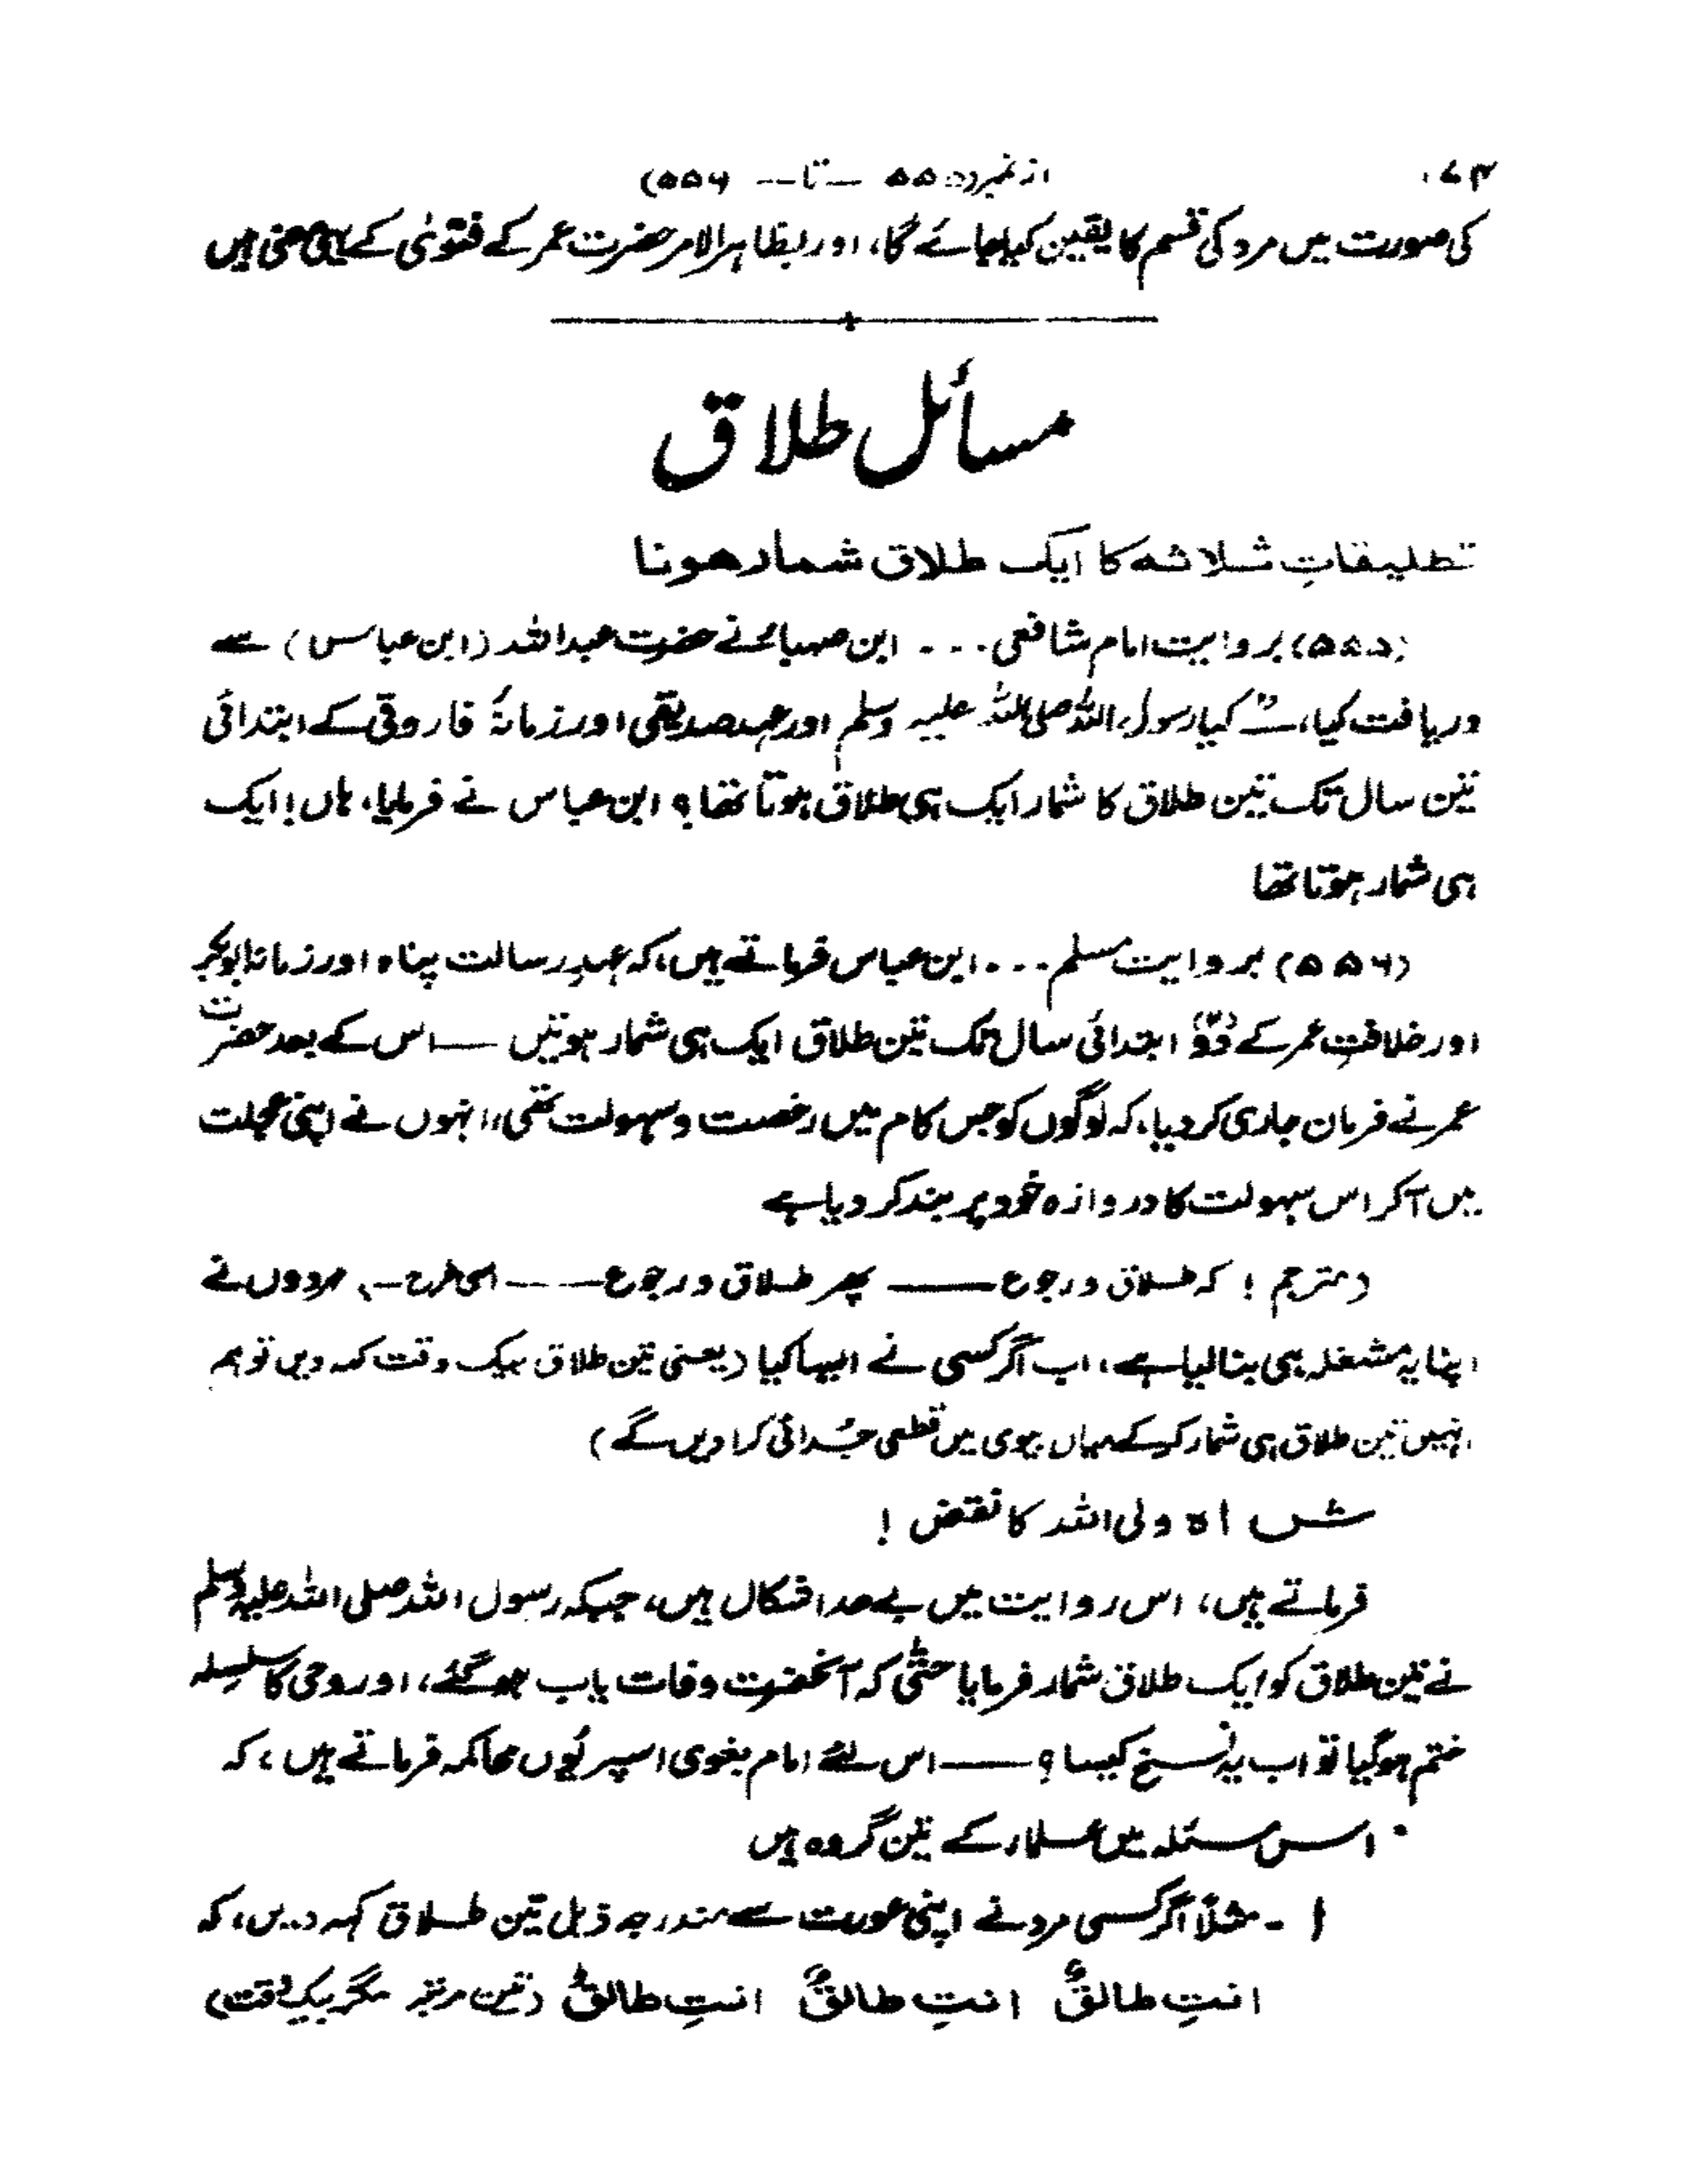 ۱۷۴
از نمبر (۵۵۵ — تا — ۵۵۶)
کی صورت میں مرد کی قسم کا یقین کیا جائے گا، اور بظاہر الامر حضرت عمر کے فتویٰ کے یہی معنی ہیں
مسائل طلاق
تطلیقاتِ ثلاثہ کا ایک طلاق شمار ھونا
(۵۵۵) بروایت امام شافعی ... ابن صہبا نے حضرت عبداللہ (ابن عباس) سے
دریافت کیا، کیا رسول اللہ صلی اللہ علیہ وسلم اور عہد صدیقی اور زمانۂ فاروقی کے ابتدائی
تین سال تک تین طلاق کا شمار ایک ہی طلاق ہوتا تھا؟ ابن عباس نے فرمایا، ہاں! ایک
ہی شمار ہوتا تھا
(۵۵۶) بروایت مسلم ... ابن عباس فرماتے ہیں، کہ عہدِ رسالت پناہ اور زمانۂ ابوبکر
اور خلافتِ عمر کے دوؔ ابتدائی سال تک تین طلاق ایک ہی شمار ہوتیں — اس کے بعد حضرت
عمر نے فرمان جاری کر دیا، کہ لوگوں کو جس کام میں رخصت و سہولت تھی، انہوں نے اپنی عجلت
میں آکر اس سہولت کا دروازہ خود پر بند کر دیا ہے
(مترجم! کہ طلاق و رجوع —— پھر طلاق و رجوع —— اسی طرح —، مردوں نے
اپنا یہ مشغلہ ہی بنا لیا ہے، اب اگر کسی نے ایسا کیا (یعنی تین طلاق بیک وقت کہہ دیں تو ہم
انہیں تین طلاق ہی شمار کر کے میاں بیوی میں قطعی جُدائی کرا دیں گے)
شاہ ولی اللہ کا نقض!
فرماتے ہیں، اس روایت میں بے حد اشکال ہیں، جبکہ رسول اللہ صلی اللہ علیہ وسلم
نے تین طلاق کو ایک طلاق شمار فرمایا حتّٰی کہ آنحضرت وفات یاب ہو گئے، اور وحی کا سلسلہ
ختم ہو گیا تو اب یہ نسخ کیسا؟ —— اس لئے امام بغوی اسپر یُوں محاکمہ فرماتے ہیں، کہ
• اس مسئلہ میں علماء کے تین گروہ ہیں
۱ - مثلاً اگر کسی مرد نے اپنی عورت سے مندرجہ ذیل تین طلاق کہہ دیں، کہ
انتِ طالقٌ انتِ طالقٌ انتِ طالقٌ (تین مرتبہ مگر بیک وقت)